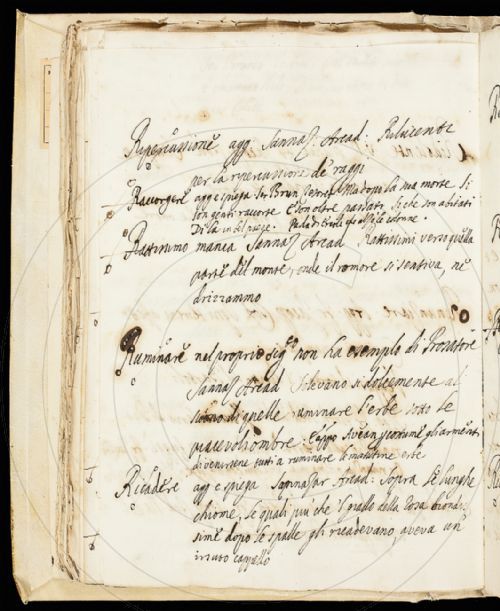 Ripercussione agg: Sannaz: Arcad: Rilucente
per la ripercussione de raggi
Raccorgere agg e spiega Ser Brun Tesret Ma dopo la sua morte Si
son genti raccorte E son oltre passati Si che son abitati
Di la in bel paese.
Rattissimo manca Sannaz Arcad Rattissimi verso quella
parte del monte, onde il romore si sentiva, ne
drizzammo
Ruminare nel proprio sig.to non ha esempio di Prosatore
Sannaz Arcad Si levano si dolcemente al
suono di quelle ruminare l'erbe sotto le
piacevoli ombre: e appo Avean per costume gli armenti
di venirsene tutti a ruminare le matutine erbe
Ricadere agg e spiega Sannazar Arcad: Sopra le lunghe
chiome, le quali piu che 'l giallo della rosa biondis
sime dopo le spalle gli ricadevano aveva un
irsuto cappello